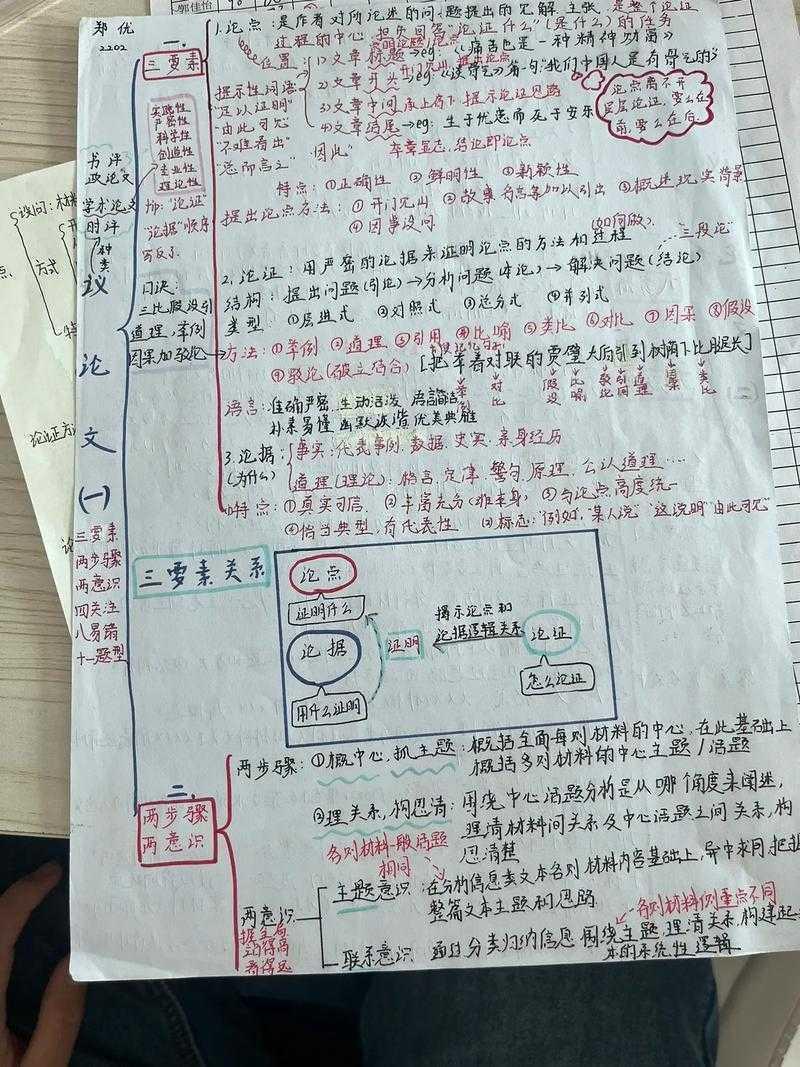 郑优
2202
郭佳怡
一、
三要素
1.论点：是作者对所论述的问题提出的见解 主张 是整个论证
过程的中心 担负回答"论证什么"(是什么)的任务
位置：1)文章标题→eg：《痛苦也是一种精神功勋》
2)文章开头 eg《谈骨气》首句"我们中国人是有骨气的"
3)文章中间 承上启下 提示论证思路
4)文章结尾→eg：生于忧患而死于安乐
卒章显志，结论即论点
提示性词语
"足以证明"
"由此可见"
"不难看出"
"总而言之" "因此"
论点离不开
层层论证，要么在
前，要么在后
特点：①正确性 ②鲜明性 ③新颖性
提出论点方法：①开门见山 ②故事、名言等加以引出 ③概述现实背景
④因事设问
(如何做)
实践性
严密性
科学性
创造性
专业性
理论性
书评
政论文
学术论文
时评
种类
tip："论证"
"论据"顺序
写反了
口诀：
三比假设引
道理，举例
因果加驳论
2.论证：用严密的论据来证明论点的方法和过程
"三段论"
结构：提出问题(引论)→分析问题(本论)→解决问题(结论)
类型：①层进式 ②对照式 ③总分式 ④并列式
方法：①举例 ②道理 ③引用 ④比喻 ⑤类比 ⑥对比 ⑦因果 ⑧假设
⑨驳论(破立结合) [把举着对联的贾璧太后引到树荫下比腿长]
语言：准确严密 生动活泼 语言简洁
朴素易懂 幽默诙谐 优美典雅
3.论据：
(为什么)
事实：代表事例、数据、史实、亲身经历
道理(理论)：格言、定律、警句、原理、公认道理……
特点：①真实可信 ②丰富充分 ③与论点高度统一
④恰当典型，有代表性 (2)标志："例如，某人说""这说明""由此可见"
议论文(一)
三要素
两步骤
两意识
四关注
八易错
十一题型
三要素关系
论点
证明什么
论据
用什么证明
证明
揭示论点和
论据逻辑关系
论证
怎么论证
二、
两步骤
两意识
两步骤：①概中心，抓主题：概括全面每则材料的中心，在此基础上
概括多则材料的中心主题/话题
②理关系，构思清：围绕中心话题分析是从哪个角度来阐述，
理清材料间关系及中心话题之间关系，构
思清楚
各则材料一般话题
相同
两意识
主题意识：在分析信息类文本各则材料内容基础上，异中求同，把握
整篇文本主题和思路
各则材料侧重点不同
联系意识：通过分类归纳信息 围绕主题，理清关系，构建起
本的系统性逻辑
设问：
方式
论证方法